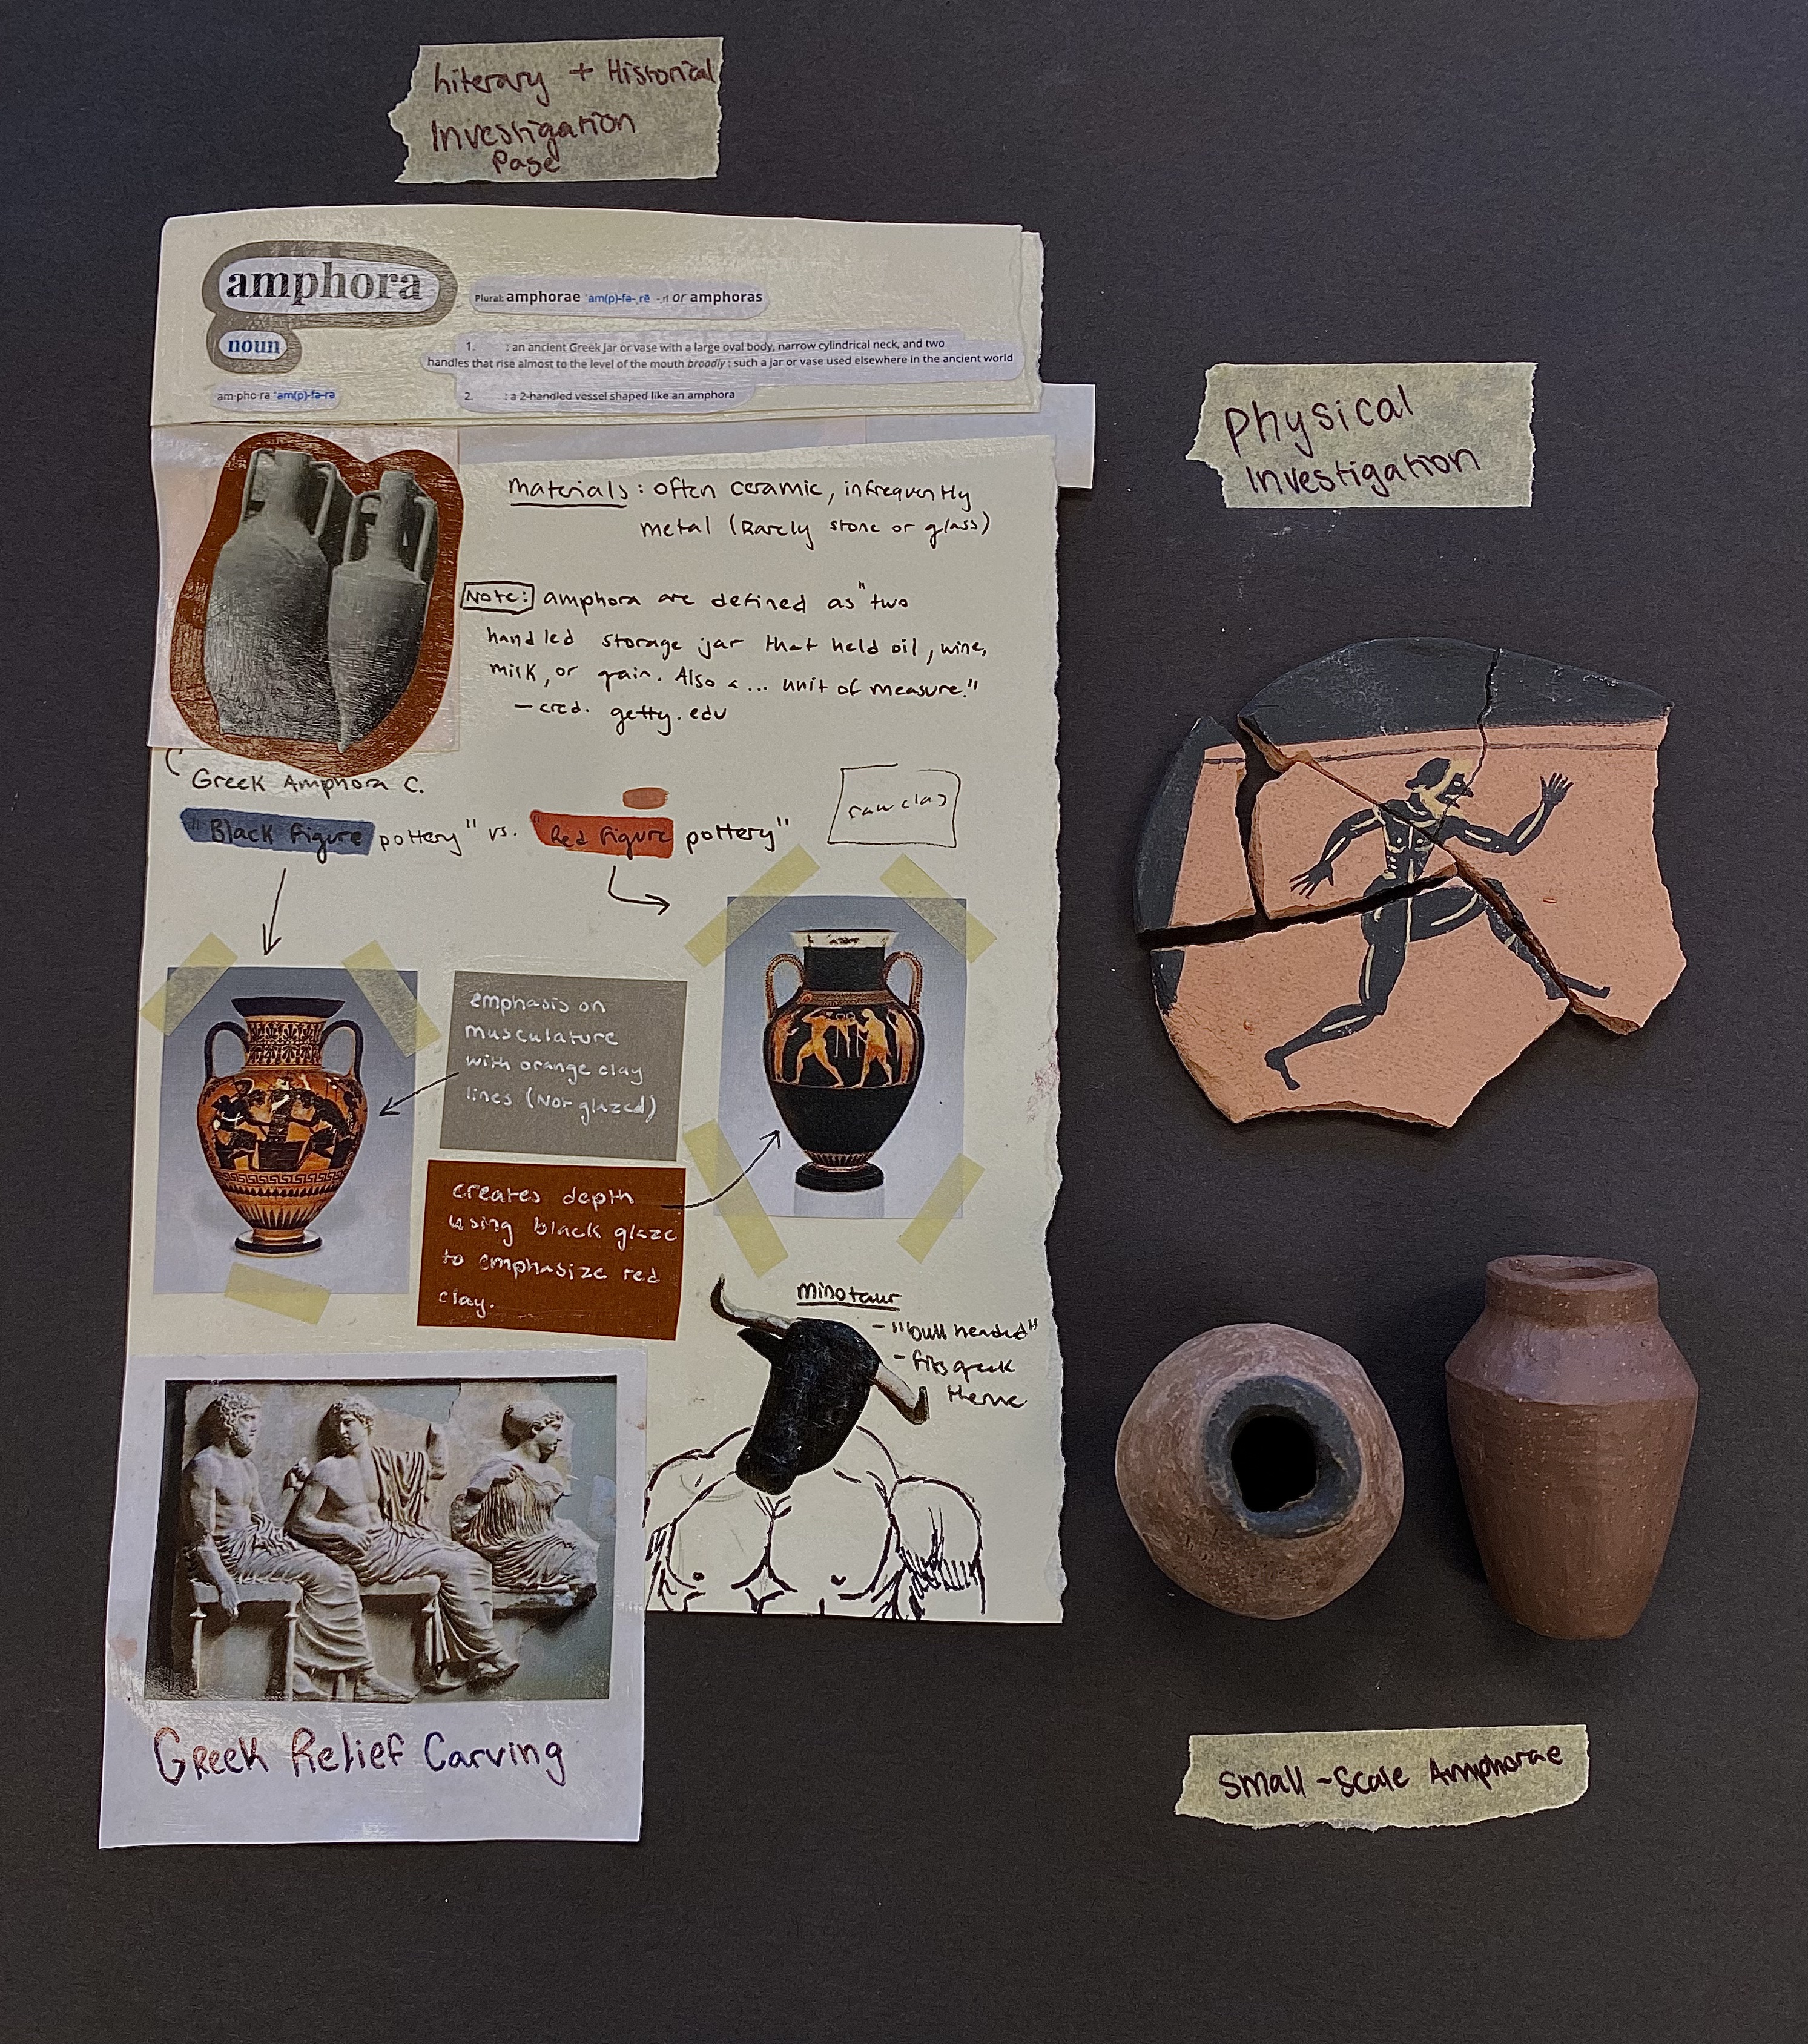 Literary + Historical
Investigation
Page
amphora
noun
am·pho·ra ˈam(p)-fə-rə
Plural: amphorae ˈam(p)-fə-ˌrē -ˌrī or amphoras
1. : an ancient Greek jar or vase with a large oval body, narrow cylindrical neck, and two
handles that rise almost to the level of the mouth broadly : such a jar or vase used elsewhere in the ancient world
2. : a 2-handled vessel shaped like an amphora
Materials: often ceramic, infrequently
metal (Rarely stone or glass)
Note: amphora are defined as "two
handled storage jar that held oil, wine,
milk, or grain. Also a... unit of measure."
- cred. getty.edu
Greek Amphora C.
"Black figure pottery" vs. "Red figure pottery"
raw clay
emphasis on
musculature
with orange clay
lines (Not glazed)
creates depth
using black glaze
to emphasize red
clay.
Minotaur
- "bull headed"
- fits greek
theme
Greek Relief Carving
Physical
Investigation
Small-Scale Amphorae